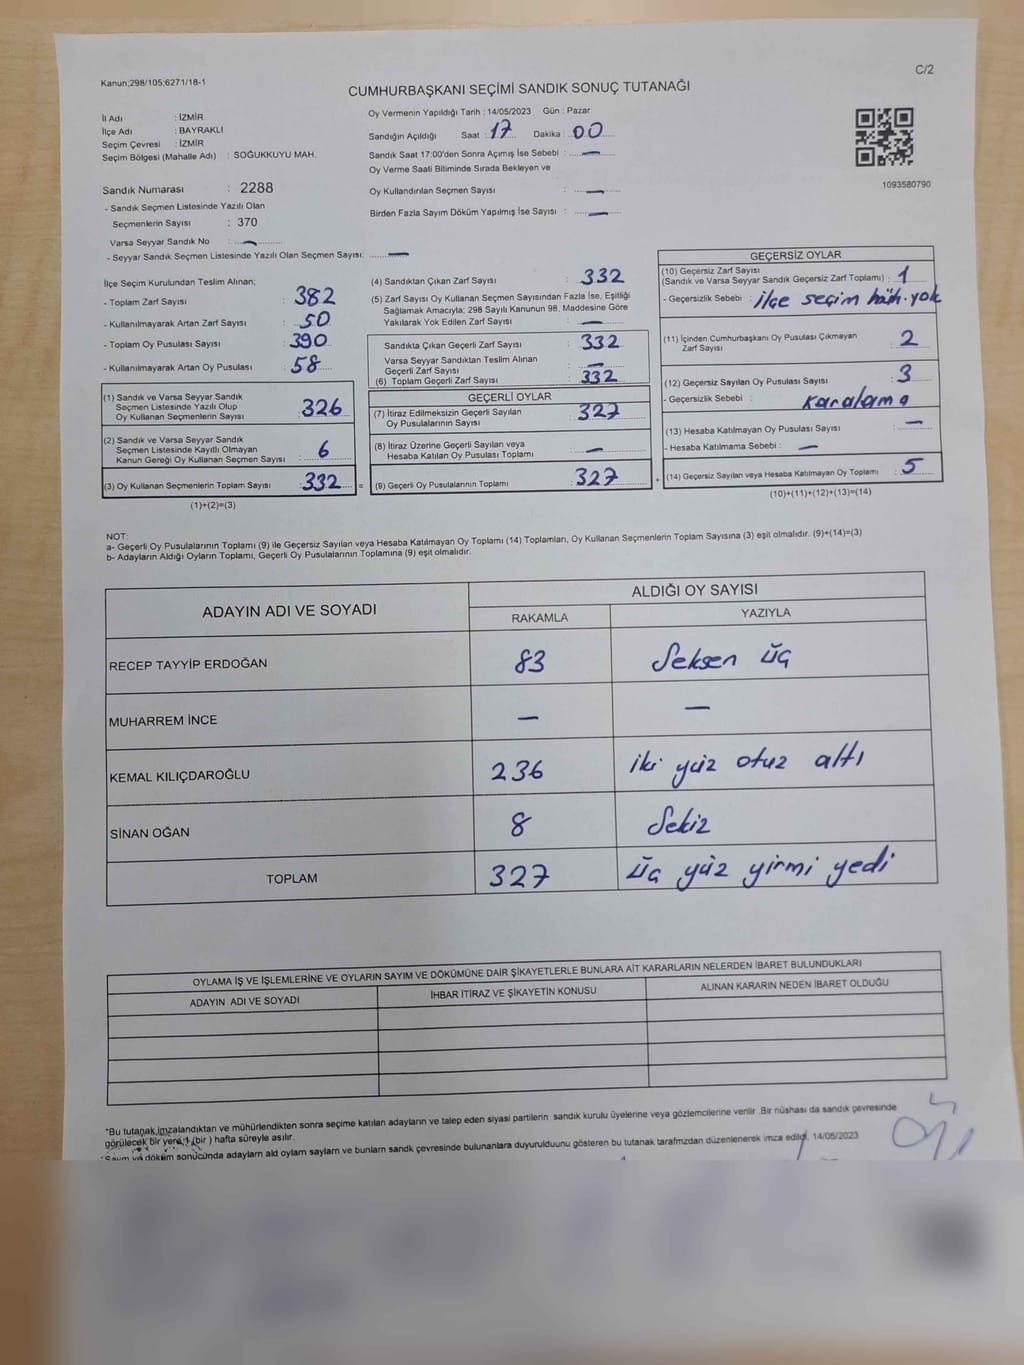 C/2
Kanun;298/105;6271/18-1
CUMHURBAŞKANI SEÇİMİ SANDIK SONUÇ TUTANAĞI
İl Adı : İZMİR
İlçe Adı : BAYRAKLI
Seçim Çevresi : İZMİR
Seçim Bölgesi (Mahalle Adı) : SOĞUKKUYU MAH.
Sandık Numarası : 2288
- Sandık Seçmen Listesinde Yazılı Olan
Seçmenlerin Sayısı : 370
Varsa Seyyar Sandık No : —
- Seyyar Sandık Seçmen Listesinde Yazılı Olan Seçmen Sayısı: —
Oy Vermenin Yapıldığı Tarih : 14/05/2023 Gün : Pazar
Sandığın Açıldığı Saat : 17 Dakika : 00
Sandık Saat 17:00'den Sonra Açımış İse Sebebi : —
Oy Verme Saati Bitiminde Sırada Bekleyen ve
Oy Kullandırılan Seçmen Sayısı : —
Birden Fazla Sayım Döküm Yapılmış İse Sayısı : —
1093580790
İlçe Seçim Kurulundan Teslim Alınan;
- Toplam Zarf Sayısı : 382
- Kullanılmayarak Artan Zarf Sayısı : 50
- Toplam Oy Pusulası Sayısı : 390
- Kullanılmayarak Artan Oy Pusulası : 58
(1) Sandık ve Varsa Seyyar Sandık
Seçmen Listesinde Yazılı Olup
Oy Kullanan Seçmenlerin Sayısı : 326
(2) Sandık ve Varsa Seyyar Sandık
Seçmen Listesinde Kayıtlı Olmayan
Kanun Gereği Oy Kullanan Seçmen Sayısı : 6
(3) Oy Kullanan Seçmenlerin Toplam Sayısı : 332 =
(1)+(2)=(3)
(4) Sandıktan Çıkan Zarf Sayısı : 332
(5) Zarf Sayısı Oy Kullanan Seçmen Sayısından Fazla İse, Eşitliği
Sağlamak Amacıyla; 298 Sayılı Kanunun 98. Maddesine Göre
Yakılarak Yok Edilen Zarf Sayısı : —
Sandıkta Çıkan Geçerli Zarf Sayısı : 332
Varsa Seyyar Sandıktan Teslim Alınan
Geçerli Zarf Sayısı : —
(6) Toplam Geçerli Zarf Sayısı : 332
GEÇERLİ OYLAR
(7) İtiraz Edilmeksizin Geçerli Sayılan
Oy Pusulalarının Sayısı : 327
(8) İtiraz Üzerine Geçerli Sayılan veya
Hesaba Katılan Oy Pusulası Toplamı : —
(9) Geçerli Oy Pusulalarının Toplamı : 327 +
GEÇERSİZ OYLAR
(10) Geçersiz Zarf Sayısı
(Sandık ve Varsa Seyyar Sandık Geçersiz Zarf Toplamı) : 1
- Geçersizlik Sebebi : ilçe seçim müh. yok
(11) İçinden Cumhurbaşkanı Oy Pusulası Çıkmayan
Zarf Sayısı : 2
(12) Geçersiz Sayılan Oy Pusulası Sayısı : 3
- Geçersizlik Sebebi : Karalama
(13) Hesaba Katılmayan Oy Pusulası Sayısı : —
- Hesaba Katılmama Sebebi : —
(14) Geçersiz Sayılan veya Hesaba Katılmayan Oy Toplamı : 5
(10)+(11)+(12)+(13)=(14)
NOT:
a- Geçerli Oy Pusulalarının Toplamı (9) ile Geçersiz Sayılan veya Hesaba Katılmayan Oy Toplamı (14) Toplamları, Oy Kullanan Seçmenlerin Toplam Sayısına (3) eşit olmalıdır. (9)+(14)=(3)
b- Adayların Aldığı Oyların Toplamı, Geçerli Oy Pusulalarının Toplamına (9) eşit olmalıdır.
ADAYIN ADI VE SOYADI ALDIĞI OY SAYISI
RAKAMLA YAZIYLA
RECEP TAYYİP ERDOĞAN 83 Seksen üç
MUHARREM İNCE — —
KEMAL KILIÇDAROĞLU 236 iki yüz otuz altı
SİNAN OĞAN 8 Sekiz
TOPLAM 327 üç yüz yirmi yedi
OYLAMA İŞ VE İŞLEMLERİNE VE OYLARIN SAYIM VE DÖKÜMÜNE DAİR ŞİKAYETLERLE BUNLARA AİT KARARLARIN NELERDEN İBARET BULUNDUKLARI
ADAYIN ADI VE SOYADI İHBAR İTİRAZ VE ŞİKAYETİN KONUSU ALINAN KARARIN NEDEN İBARET OLDUĞU
*Bu tutanak imzalandıktan ve mühürlendikten sonra seçime katılan adayların ve talep eden siyasi partilerin sandık kurulu üyelerine veya gözlemcilerine verilir .Bir nüshası da sandık çevresinde
görülecek bir yere 1 (bir ) hafta süreyle asılır.
*Sayım ve döküm sonucunda adayların ald oyların sayları ve bunların sandk çevresinde bulunanlara duyurulduunu gösteren bu tutanak tarafmzdan düzenlenerek imza edildi. 14/05/2023